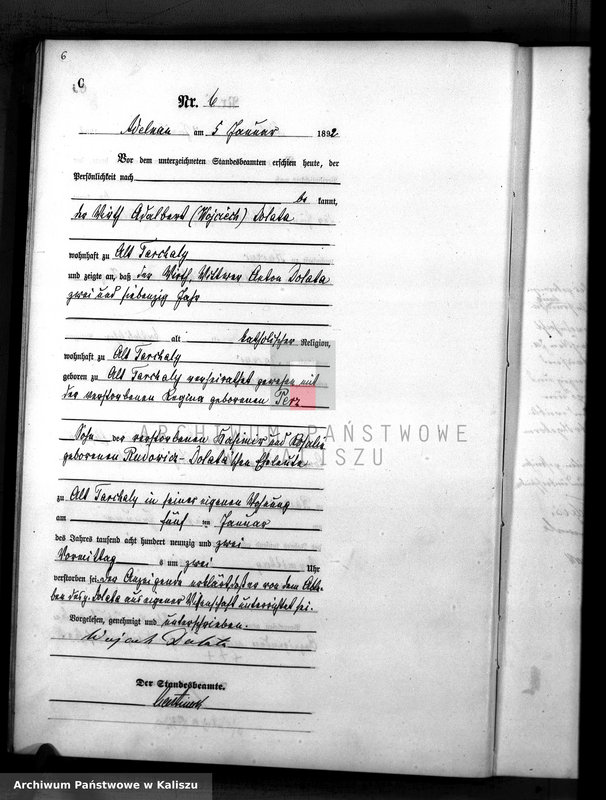 6
C
Nr. 6
Adelnau am 5 Januar 1892
Vor dem unterzeichneten Standesbeamten erschien heute, der
Persönlichkeit nach
be kannt,
der Wirth Adalbert (Wojciech) Dolata
wohnhaft zu Alt Tarchaly
und zeigte an, daß der Wirth, Wittwer Anton Dolata
zwei und siebenzig Jahr
alt katholischer Religion,
wohnhaft zu Alt Tarchaly
geboren zu Alt Tarchaly verheirathet gewesen mit
der verstorbenen Regina geborenen Perz
Sohn der verstorbenen Kasimir und Rosalie
geborenen Rudowicz Dolata'schen Eheleute
zu Alt Tarchaly in seiner eigenen Wohnung
am fünf ten Januar
des Jahres tausend acht hundert neunzig und zwei
Vormittag s um zwei Uhr
verstorben sei. Der Anzeigende erklärt, daß er von dem Able-
ben des g. Dolata aus eigener Wissenschaft unterrichtet sei.
Vorgelesen, genehmigt und unterschrieben.
Wojciech Dolata
Der Standesbeamte.
ARCHIWUM PAŃSTWOWE
KALISZU
Archiwum Państwowe w Kaliszu